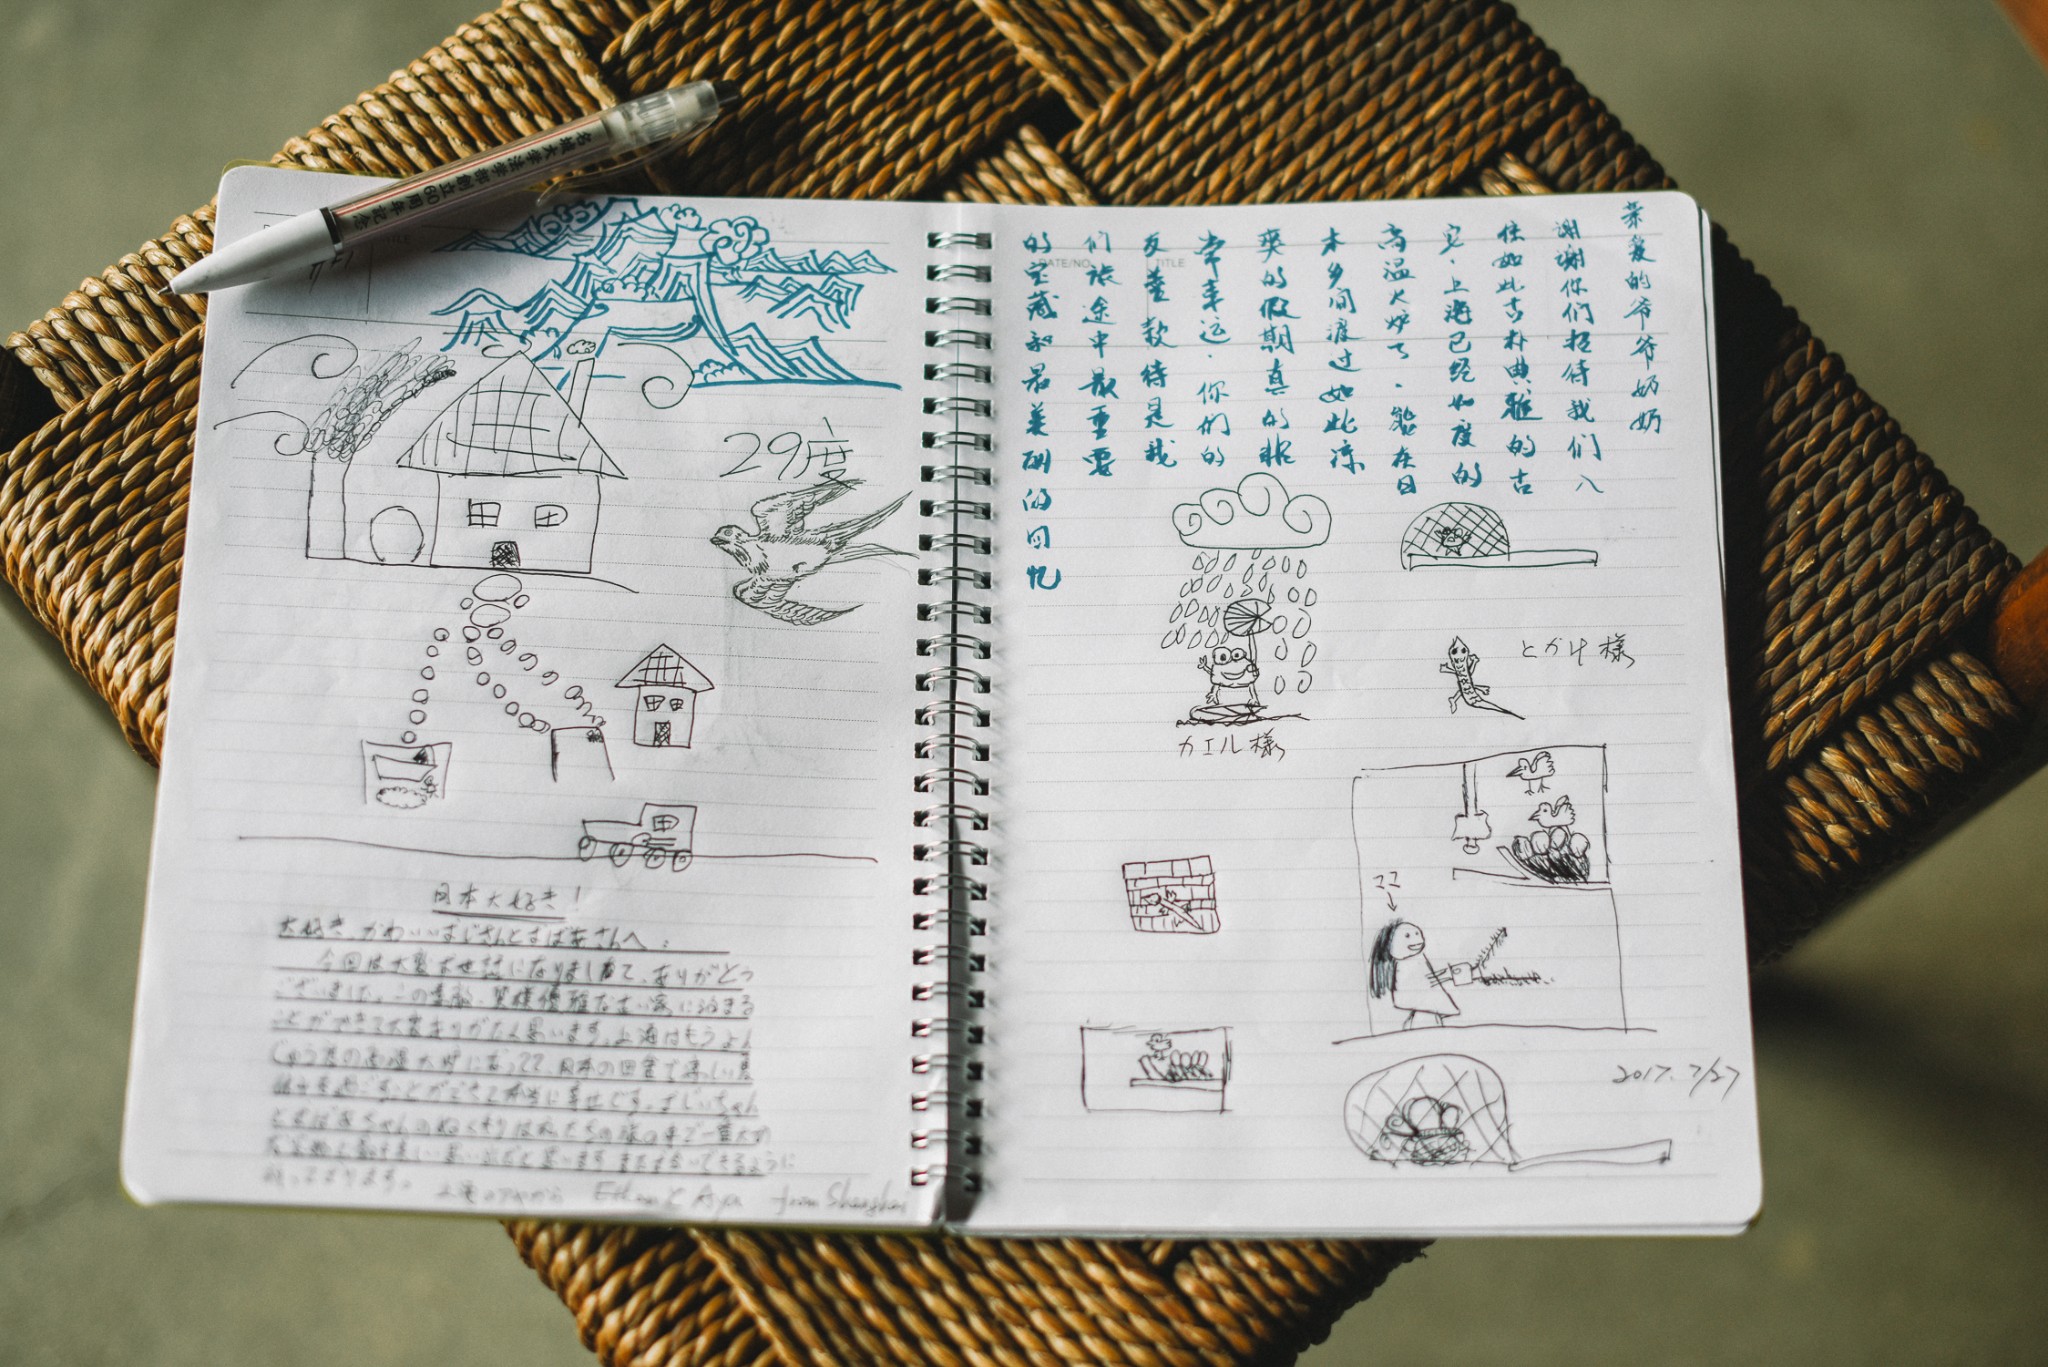 名城大学法学部創立60周年記念
TITLE
29度
日本大好き！
大好き、かわいいおじさんとおばあさんへ：
今回は大変お世話になりまして、ありがとう
ございました。この素敵、優雅なお家に泊まる
ことができて大変ありがたく思います。上海はもうよん
じゅう度の高温火炉になってて、日本の田舎で涼しい夏
過ごすことができて本当に幸せです。おじいちゃん
とおばあちゃんのぬくもりは私たちの旅の中で一番大切
美しい思い出だと思います。またお会いできるように
っております。
上海のアヤから EthanとAya from Shanghai
DATE/NO.
TITLE
亲爱的爷爷奶奶
谢谢你们招待我们入
住如此古朴典雅的古
宅.上海已经40度的
高温火炉了.能在日
本乡间渡过如此凉
爽的假期真的非
常幸运.你们的
友善款待是我
们旅途中最重要
的宝藏和最美丽的回忆
カエル様
とかげ様
ココ
2017.7/27